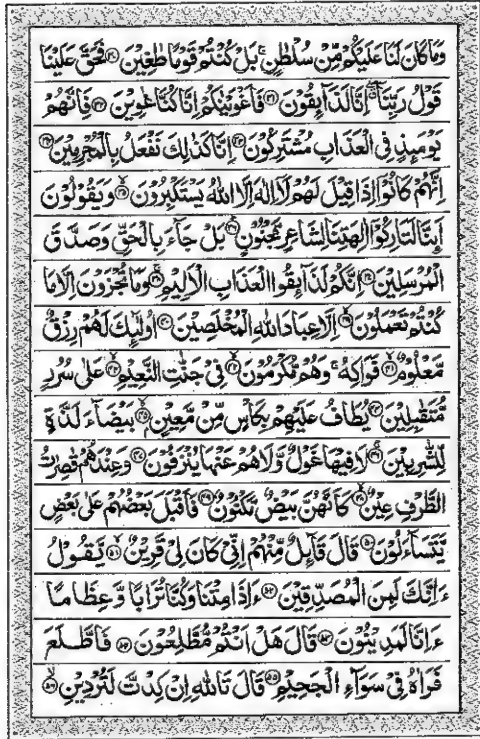 وَمَا كَانَ لَنَا عَلَيْكُمْ مِّنْ سُلْطٰنٍ ۚ بَلْ كُنْتُمْ قَوْمًا طٰغِيْنَ ۝۳۰ فَحَقَّ عَلَيْنَا
قَوْلُ رَبِّنَاۤ ۖ اِنَّا لَذَآىِٕقُوْنَ ۝۳۱ فَاَغْوَيْنٰكُمْ اِنَّا كُنَّا غٰوِيْنَ ۝۳۲ فَاِنَّهُمْ
يَوْمَىِٕذٍ فِي الْعَذَابِ مُشْتَرِكُوْنَ ۝۳۳ اِنَّا كَذٰلِكَ نَفْعَلُ بِالْمُجْرِمِيْنَ ۝۳۴
اِنَّهُمْ كَانُوْۤا اِذَا قِيْلَ لَهُمْ لَاۤ اِلٰهَ اِلَّا اللّٰهُ يَسْتَكْبِرُوْنَ ۝۳۵ وَيَقُوْلُوْنَ
اَىِٕنَّا لَتَارِكُوْۤا اٰلِهَتِنَا لِشَاعِرٍ مَّجْنُوْنٍ ۝۳۶ بَلْ جَآءَ بِالْحَقِّ وَصَدَّقَ
الْمُرْسَلِيْنَ ۝۳۷ اِنَّكُمْ لَذَآىِٕقُوا الْعَذَابِ الْاَلِيْمِ ۝۳۸ وَمَا تُجْزَوْنَ اِلَّا مَا
كُنْتُمْ تَعْمَلُوْنَ ۝۳۹ اِلَّا عِبَادَ اللّٰهِ الْمُخْلَصِيْنَ ۝۴۰ اُولٰٓىِٕكَ لَهُمْ رِزْقٌ
مَّعْلُوْمٌ ۝۴۱ فَوَاكِهُ ۚ وَهُمْ مُّكْرَمُوْنَ ۝۴۲ فِيْ جَنّٰتِ النَّعِيْمِ ۝۴۳ عَلٰى سُرُرٍ
مُّتَقٰبِلِيْنَ ۝۴۴ يُطَافُ عَلَيْهِمْ بِكَاْسٍ مِّنْ مَّعِيْنٍ ۝۴۵ بَيْضَآءَ لَذَّةٍ
لِّلشّٰرِبِيْنَ ۝۴۶ لَا فِيْهَا غَوْلٌ وَّلَا هُمْ عَنْهَا يُنْزَفُوْنَ ۝۴۷ وَعِنْدَهُمْ قٰصِرٰتُ
الطَّرْفِ عِيْنٌ ۝۴۸ كَاَنَّهُنَّ بَيْضٌ مَّكْنُوْنٌ ۝۴۹ فَاَقْبَلَ بَعْضُهُمْ عَلٰى بَعْضٍ
يَّتَسَآءَلُوْنَ ۝۵۰ قَالَ قَآىِٕلٌ مِّنْهُمْ اِنِّيْ كَانَ لِيْ قَرِيْنٌ ۝۵۱ يَّقُوْلُ
ءَاِنَّكَ لَمِنَ الْمُصَدِّقِيْنَ ۝۵۲ ءَاِذَا مِتْنَا وَكُنَّا تُرَابًا وَّعِظَامًا
ءَاِنَّا لَمَدِيْنُوْنَ ۝۵۳ قَالَ هَلْ اَنْتُمْ مُّطَّلِعُوْنَ ۝۵۴ فَاطَّلَعَ
فَرَاٰهُ فِيْ سَوَآءِ الْجَحِيْمِ ۝۵۵ قَالَ تَاللّٰهِ اِنْ كِدْتَّ لَتُرْدِيْنِ ۝۵۶